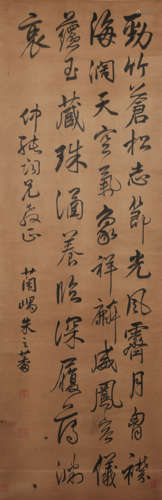 勁竹蒼松志節光風霽月胷襟
海闊天空氣象祥麟威鳳容儀
蘊玉藏珠涵養臨深履薄淵
衷
仲韓詞兄教正
蘭嵎朱之蕃